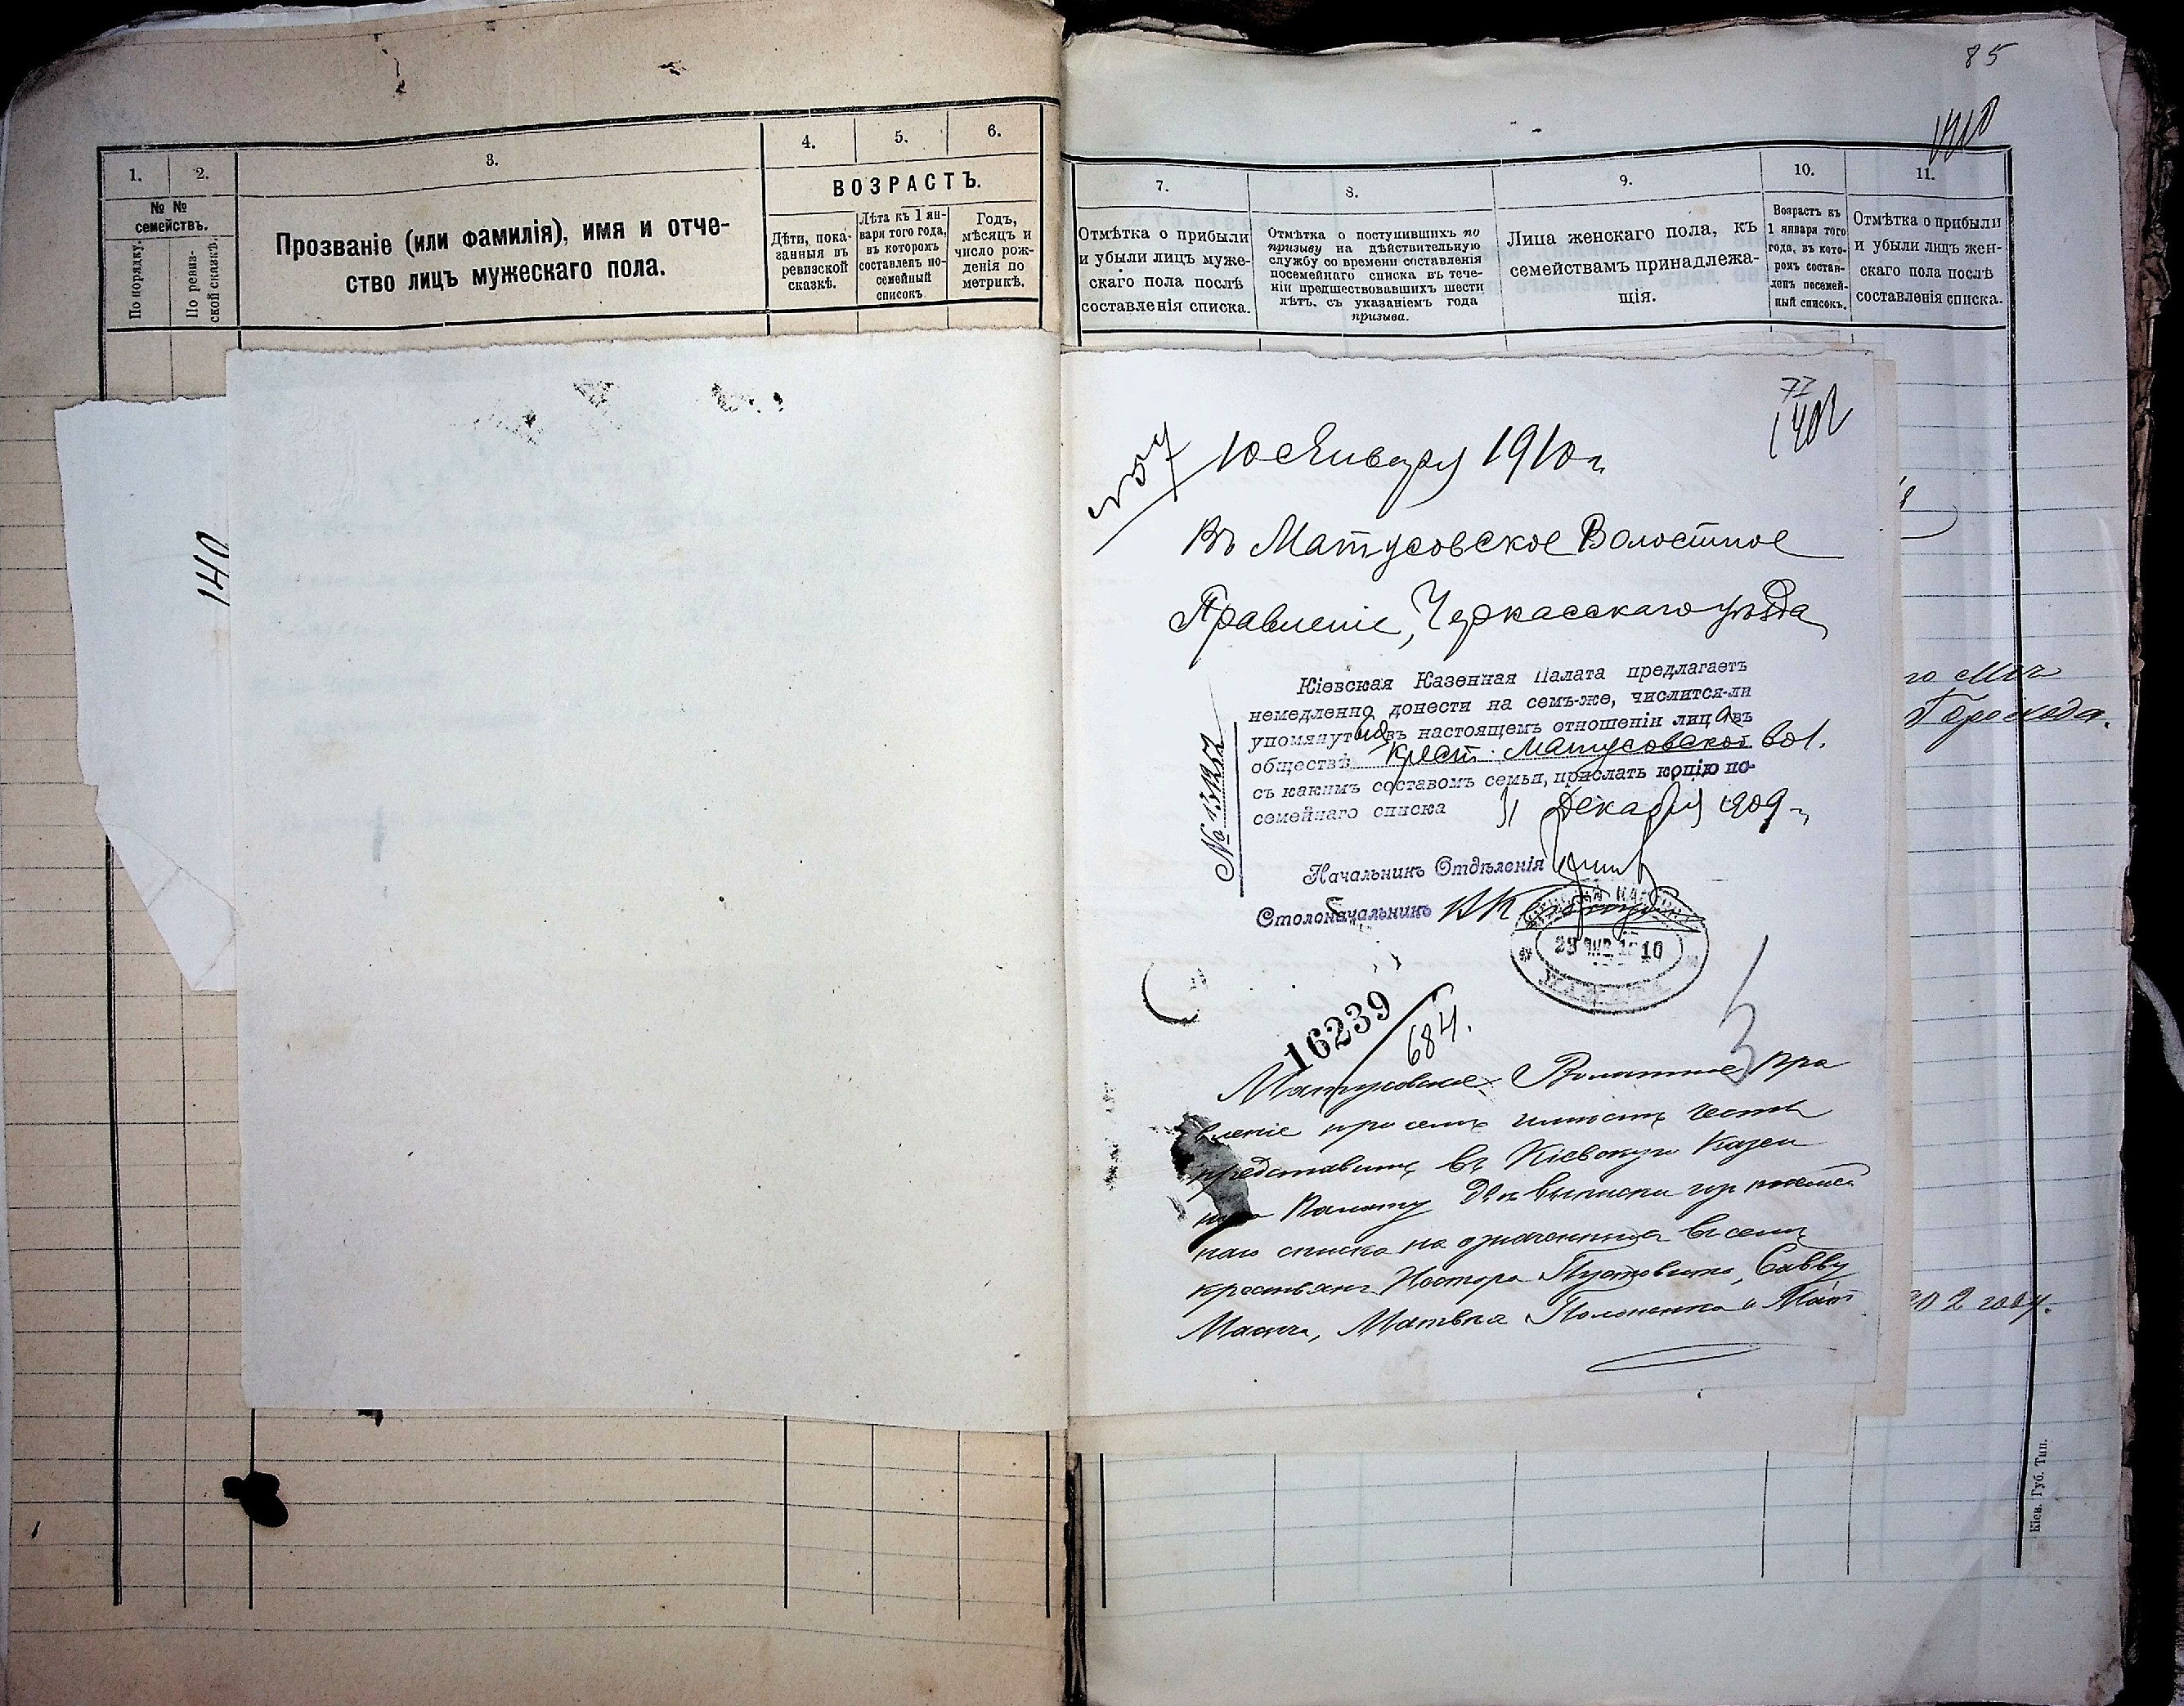 85
1. 2. 3. 4. 5. 6.
№ №
семействъ.
По порядку.
По ревиз-
ской сказкѣ.
Прозваніе (или фамилія), имя и отче-
ство лицъ мужескаго пола.
ВОЗРАСТЪ.
Дѣти, пока-
занныя въ
ревизской
сказкѣ.
Лѣта къ 1 ян-
варя того года,
въ которомъ
составленъ по-
семейный
списокъ.
Годъ,
мѣсяцъ и
число рож-
денія по
метрикѣ.
7. 8. 9. 10. 11.
Отмѣтка о прибыли
и убыли лицъ муже-
скаго пола послѣ
составленія списка.
Отмѣтка о поступившихъ по
призыву на дѣйствительную
службу со времени составленія
посемейнаго списка въ тече-
ніи предшествовавшихъ шести
лѣтъ, съ указаніемъ года
призыва.
Лица женскаго пола, къ
семействамъ принадлежа-
щія.
Возрастъ къ
1 января того
года, въ кото-
ромъ состав-
ленъ посемей-
ный списокъ.
Отмѣтка о прибыли
и убыли лицъ жен-
скаго пола послѣ
составленія списка.
141
77
10 Января 1910 г
Въ Матусовское Волостное
Правленіе, Черкасскаго уѣзда
Кіевская Казенная Палата предлагаетъ
немедленно донести на семъ-же, числится-ли
упомянутыя въ настоящемъ отношеніи лица въ
обществѣ крест. Матусовской вол.
съ какимъ составомъ семьи, прислать копію по-
семейнаго списка 31 Декабря 1909 г.
№
Начальникъ Отдѣленія
Столоначальникъ
29 ЯНВ 1910
16239
684.
Матусовское Волостное Пра
вленіе при семъ имѣетъ честь
представить въ Кіевскую Казен
ную Палату двѣ выписки изъ посемей
наго списка на означенныхъ въ семъ
крестьянъ Нестора Пустовита, Савву
Масича, Матвѣя Полоненка и
902 году.
Кіев. Губ. Тип.